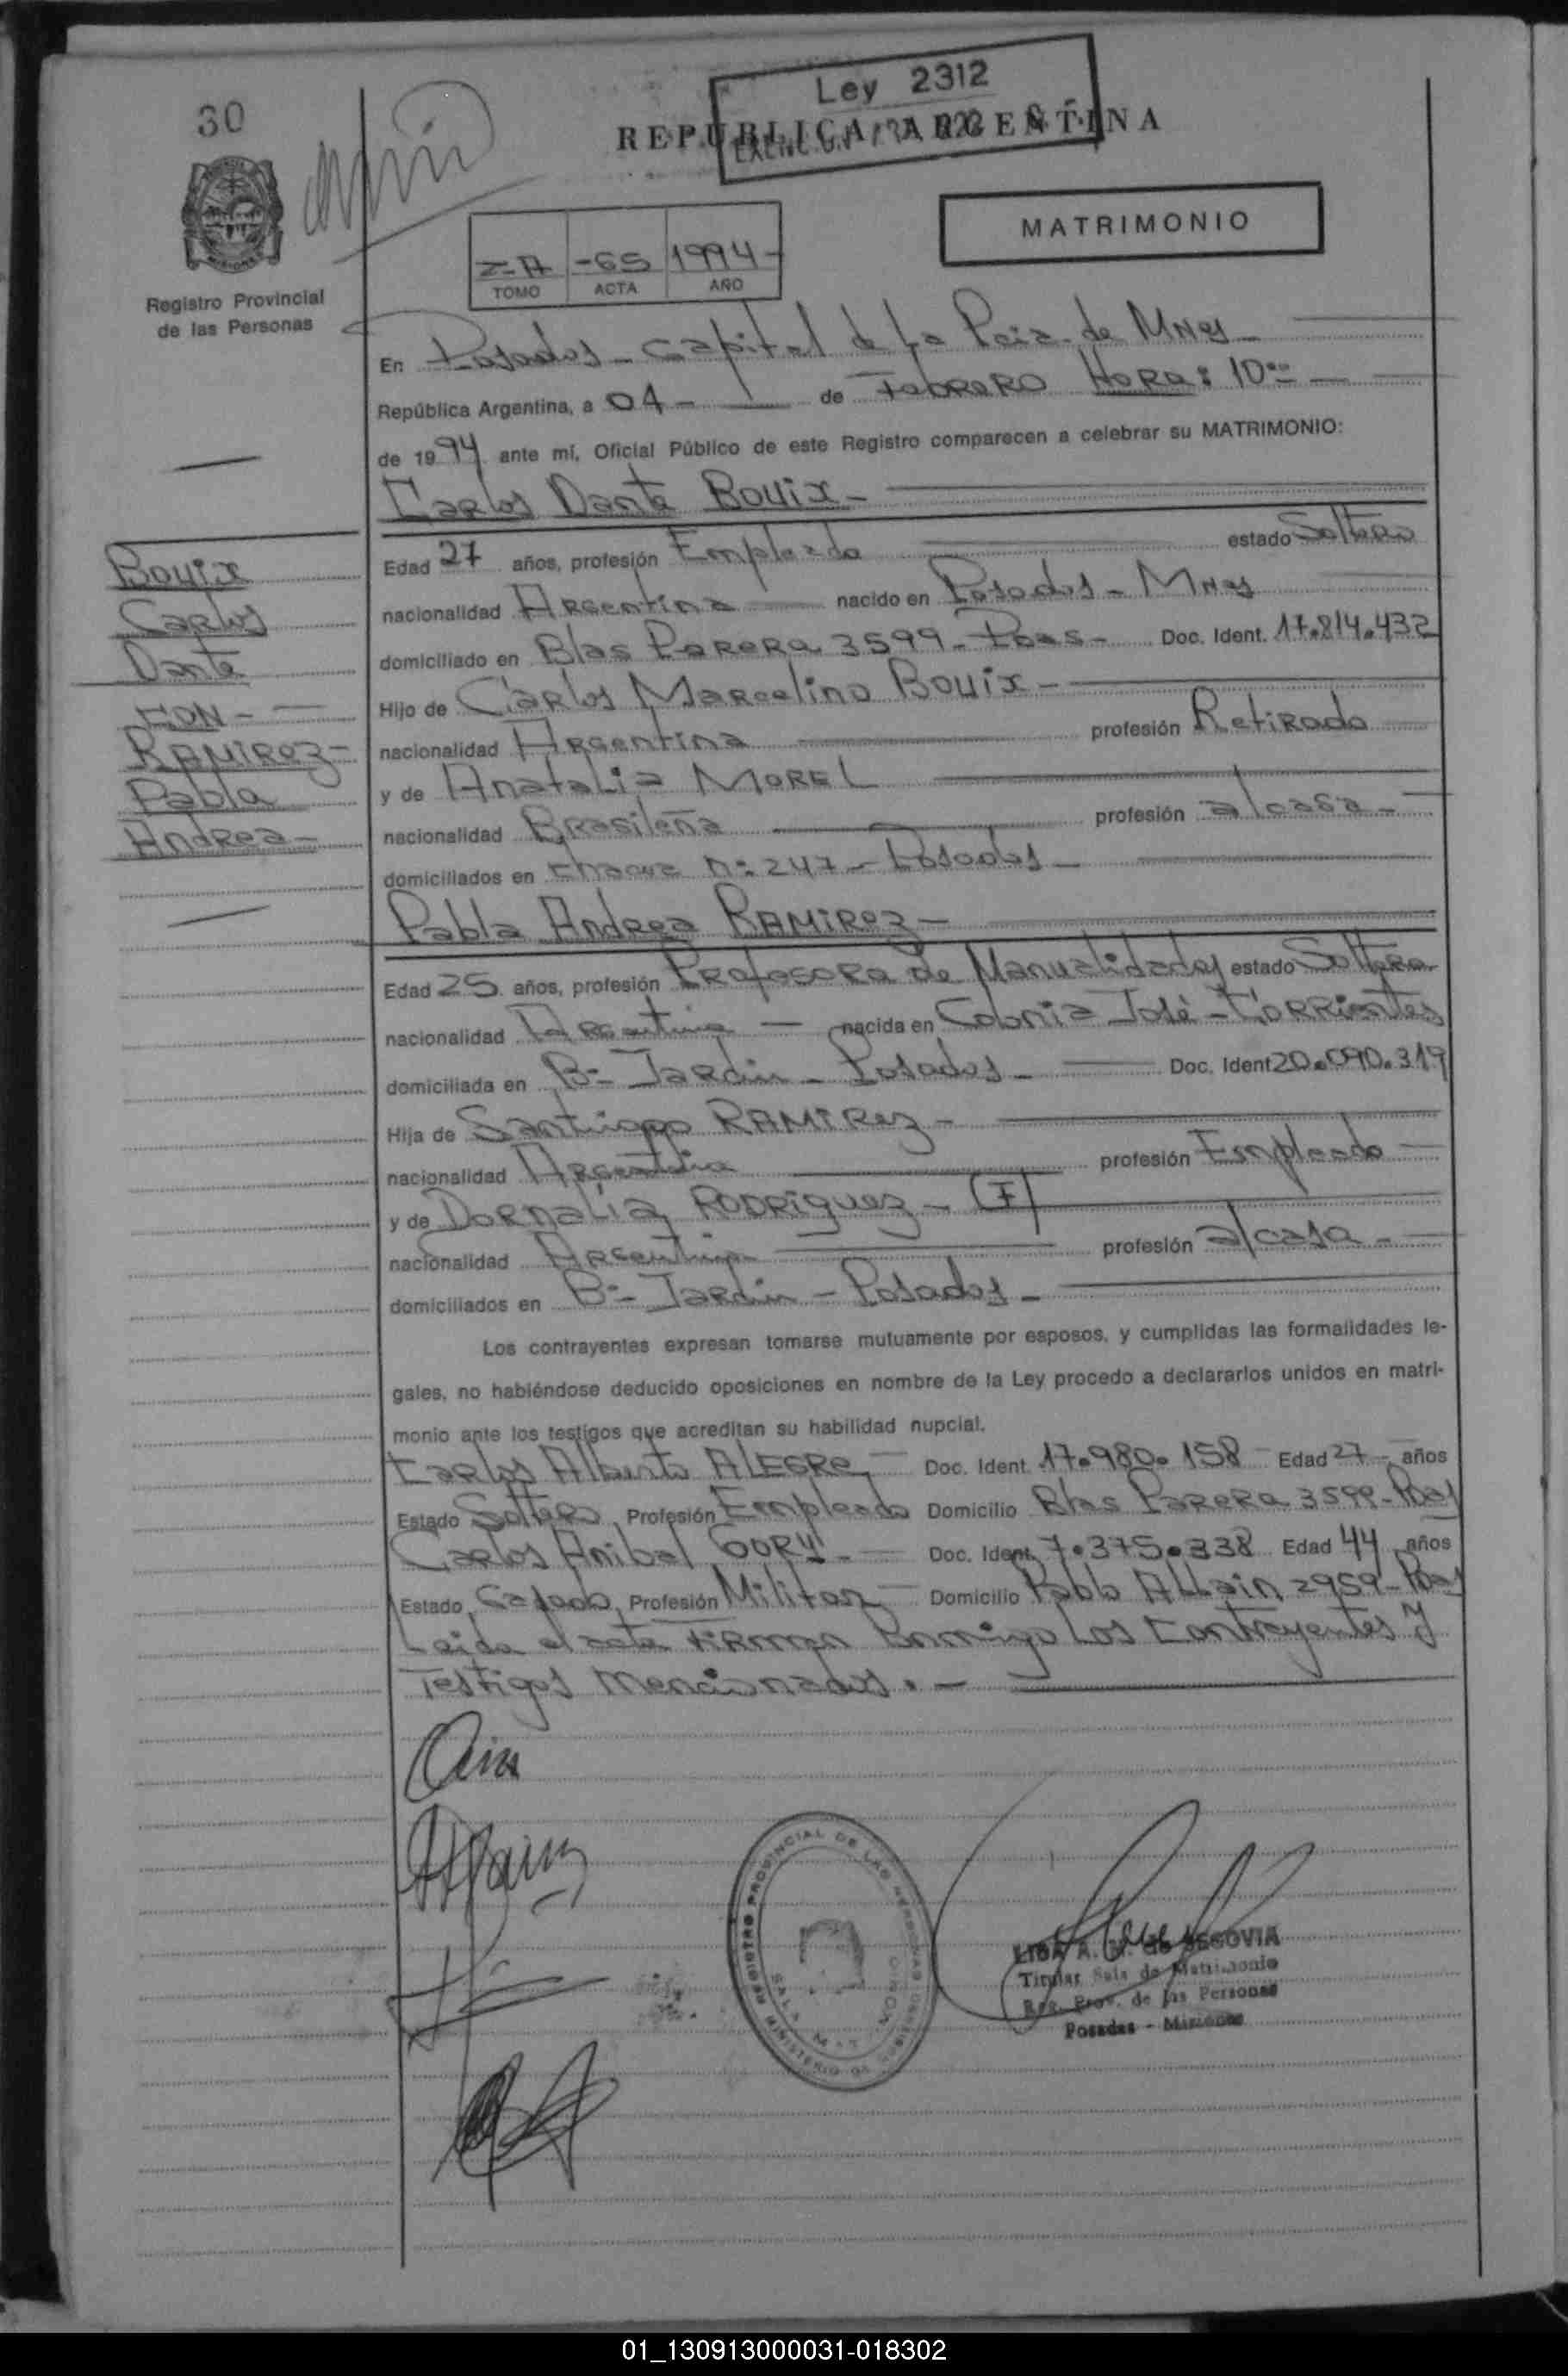 30
Ley 2312
REPUBLICA ARGENTINA
MATRIMONIO
2-A -65 1994-
TOMO ACTA AÑO
Registro Provincial
de las Personas
En Posadas - Capital de La Pcia. de Mnes -
República Argentina, a 04 - de Febrero Hora: 10
de 1994 ante mí, Oficial Público de este Registro comparecen a celebrar su MATRIMONIO:
Carlos Dante Bouix -
Edad 27 años, profesión Empleado estado Soltero
nacionalidad Argentina nacido en Posadas - Mnes
domiciliado en Blas Parera 3599 - Pdas - Doc. Ident. 17.814.432
Hijo de Carlos Marcelino Bouix -
nacionalidad Argentina profesión Retirado
y de Anatalia MOREL
nacionalidad Brasileña profesión a/casa -
domiciliados en Nº 247 - Posadas -
Bouix
Carlos
Dante
CON -
RAMIREZ -
Pabla
Andrea -
Pabla Andrea RAMIREZ -
Edad 25 años, profesión Profesora de Manualidades estado Soltera
nacionalidad Argentina - nacida en Colonia José - Corrientes
domiciliada en Bº Jardin - Posadas - Doc. Ident 20.090.319
Hija de Santiago RAMIREZ -
nacionalidad Argentina profesión Empleado -
y de Dornalia RODRIGUEZ - (F)
nacionalidad Argentina profesión a/casa -
domiciliados en Bº Jardin - Posadas -
Los contrayentes expresan tomarse mutuamente por esposos, y cumplidas las formalidades le-
gales, no habiéndose deducido oposiciones en nombre de la Ley procedo a declararlos unidos en matri-
monio ante los testigos que acreditan su habilidad nupcial.
Carlos Alberto ALEGRE - Doc. Ident. 17.980.158 - Edad 27 - años
Estado Soltero Profesión Empleado Domicilio Blas Parera 3599 - Pdas
Carlos Anibal GORY - Doc. Ident. 7.375.338 Edad 44 años
Estado Casado Profesión Militar - Domicilio Pablo Allain 2959 - Pdas
Leida el acta Firman Conmigo Los Contrayentes y
Testigos Mencionados. -
REGISTRO PROVINCIAL DE LAS PERSONAS
LIGA A. M. de SEGOVIA
Titular Sala de Matrimonio
Reg. Prov. de las Personas
Posadas - Misiones
01_130913000031-018302